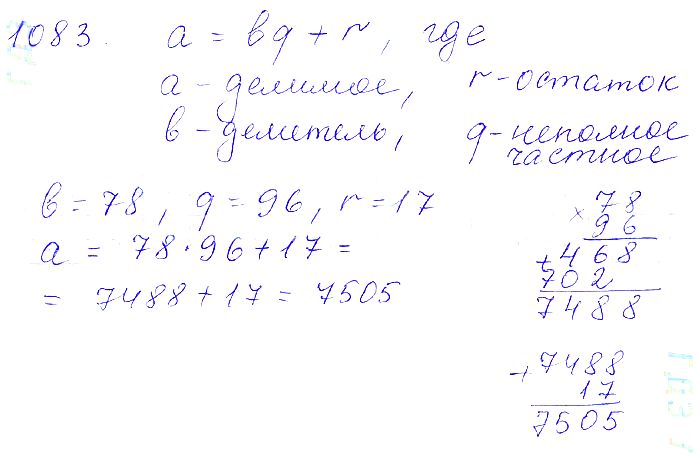 1083. a = bq + r, где
a - делимое, r - остаток
b - делитель, q - неполное
частное
b = 78, q = 96, r = 17
a = 78 · 96 + 17 =
= 7488 + 17 = 7505
× 78
96
+ 468
702
7488
+ 7488
17
7505